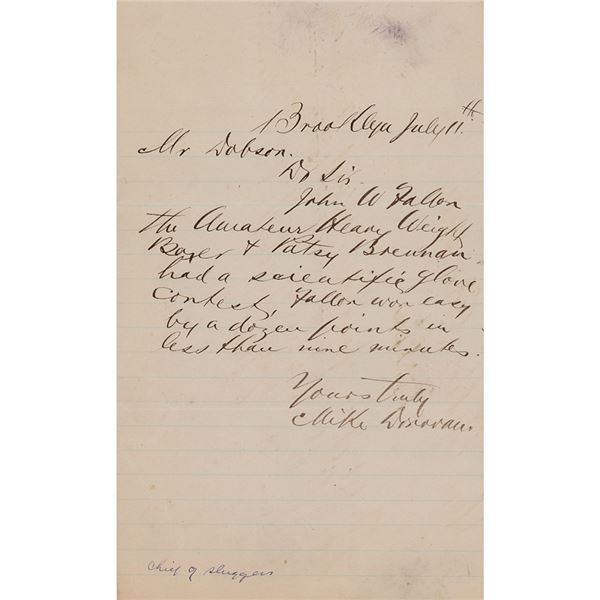 Brooklyn July 11th
Mr Dobson.
Dr Sir
John W Fallon
the Amateur Heavy Weight
Boxer & Patsy Brennan
had a scientific glove
contest, Fallon won easy
by a dozen points in
less than nine minutes.
Yours truly
Mike Donovan.
Chief of Sluggers